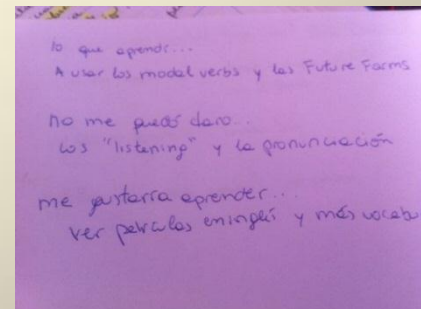 lo que aprendí...
A usar los modal verbs y las Future Forms
no me quedó claro...
los "listening" y la pronunciación
me gustaría aprender...
ver películas en inglés y más vocabu